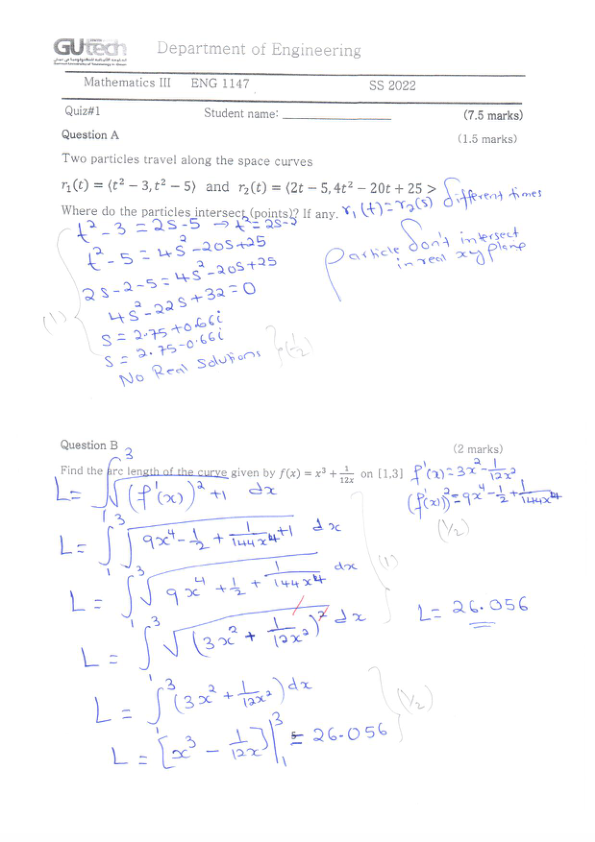 GUtech Department of Engineering
Mathematics III ENG 1147 SS 2022
Quiz#1 Student name: (7.5 marks)
Question A (1.5 marks)
Two particles travel along the space curves
r₁(t) = ⟨t² − 3, t² − 5⟩ and r₂(t) = ⟨2t − 5, 4t² − 20t + 25 >
Where do the particles intersect (points)? If any. r₁(t) = r₂(s) different times
t² - 3 = 2s - 5 → t² = 2s-2
t² - 5 = 4s² - 20s + 25
2s - 2 - 5 = 4s² - 20s + 25
4s² - 22s + 32 = 0
s = 2.75 + 0.66i
s = 2.75 - 0.66i
No Real Solutions
(1)
(1/2)
particle don't intersect
in real xy plane
Question B (2 marks)
Find the arc length of the curve given by f(x) = x³ + 1/12x on [1.3] f'(x) = 3x² - 1/12x²
L = ∫₁³ √(f'(x))² + 1 dx
(f'(x))² = 9x⁴ - 1/2 + 1/144x⁴
(1/2)
L = ∫₁³ √9x⁴ - 1/2 + 1/144x⁴ + 1 dx
L = ∫₁³ √9x⁴ + 1/2 + 1/144x⁴ dx
(1)
L = 26.056
L = ∫₁³ √(3x² + 1/12x²)² dx
L = ∫₁³ (3x² + 1/12x²) dx
(1/2)
L = [x³ - 1/12x]|₁³ = 26.056